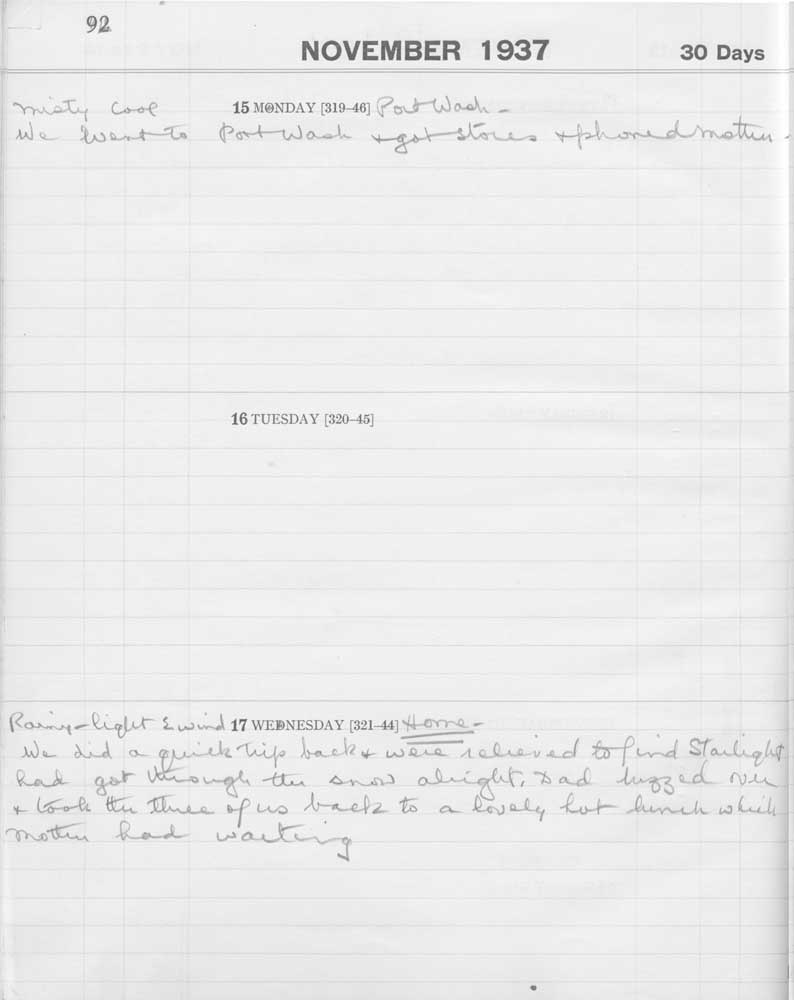 92
NOVEMBER 1937 30 Days
Misty Cool 15 MONDAY [319–46] Port Wash –
We went to Port Wash + got stores + phoned Mother.
16 TUESDAY [320–45]
Rainy – light E wind 17 WEDNESDAY [321–44] Home –
We did a quick trip back + were relieved to find Starlight
had got through the snow alright. Dad buzzed over
+ took the three of us back to a lovely hot lunch which
Mother had waiting